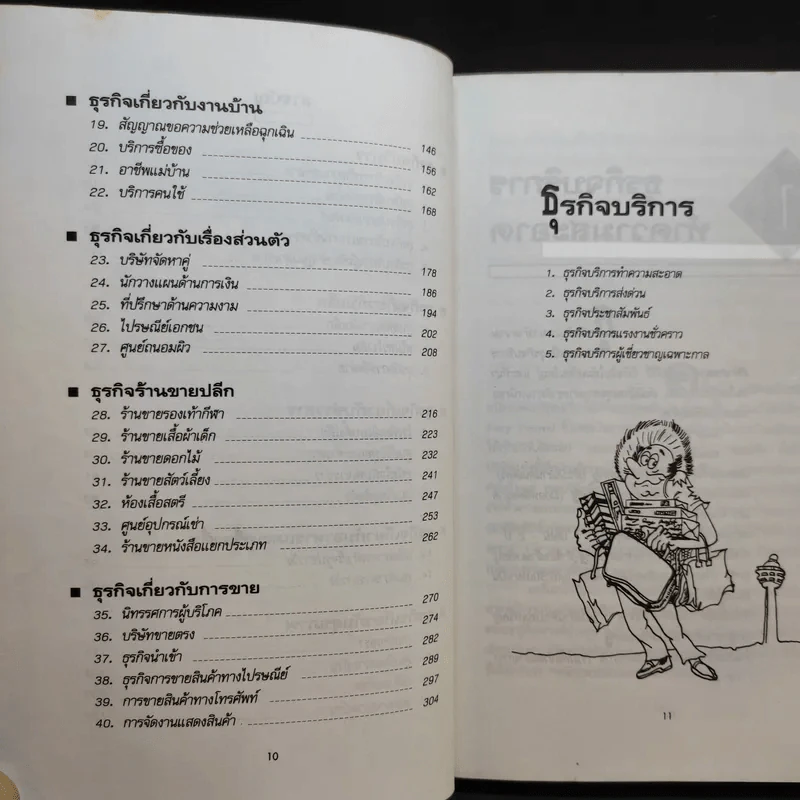 ■ ธุรกิจเกี่ยวกับงานบ้าน
19. สัญญาณขอความช่วยเหลือฉุกเฉิน 146
20. บริการซื้อของ 156
21. อาชีพแม่บ้าน 162
22. บริการคนใช้ 168
■ ธุรกิจเกี่ยวกับเรื่องส่วนตัว
23. บริษัทจัดหาคู่ 178
24. นักวางแผนด้านการเงิน 186
25. ที่ปรึกษาด้านความงาม 194
26. ไปรษณีย์เอกชน 202
27. ศูนย์ถนอมผิว 208
■ ธุรกิจร้านขายปลีก
28. ร้านขายรองเท้ากีฬา 216
29. ร้านขายเสื้อผ้าเด็ก 223
30. ร้านขายดอกไม้ 232
31. ร้านขายสัตว์เลี้ยง 241
32. ห้องเสื้อสตรี 247
33. ศูนย์อุปกรณ์เช่า 253
34. ร้านขายหนังสือแยกประเภท 262
■ ธุรกิจเกี่ยวกับการขาย
35. นิทรรศการผู้บริโภค 270
36. บริษัทขายตรง 274
37. ธุรกิจนำเข้า 282
38. ธุรกิจการขายสินค้าทางไปรษณีย์ 289
39. การขายสินค้าทางโทรศัพท์ 297
40. การจัดงานแสดงสินค้า 304
10
ธุรกิจบริการ
1. ธุรกิจบริการทำความสะอาด
2. ธุรกิจบริการส่งด่วน
3. ธุรกิจประชาสัมพันธ์
4. ธุรกิจบริการแรงงานชั่วคราว
5. ธุรกิจบริการผู้เชี่ยวชาญเฉพาะกาล
11